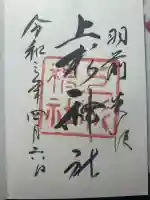 羽前米沢
上杉神社
令和三年四月六日